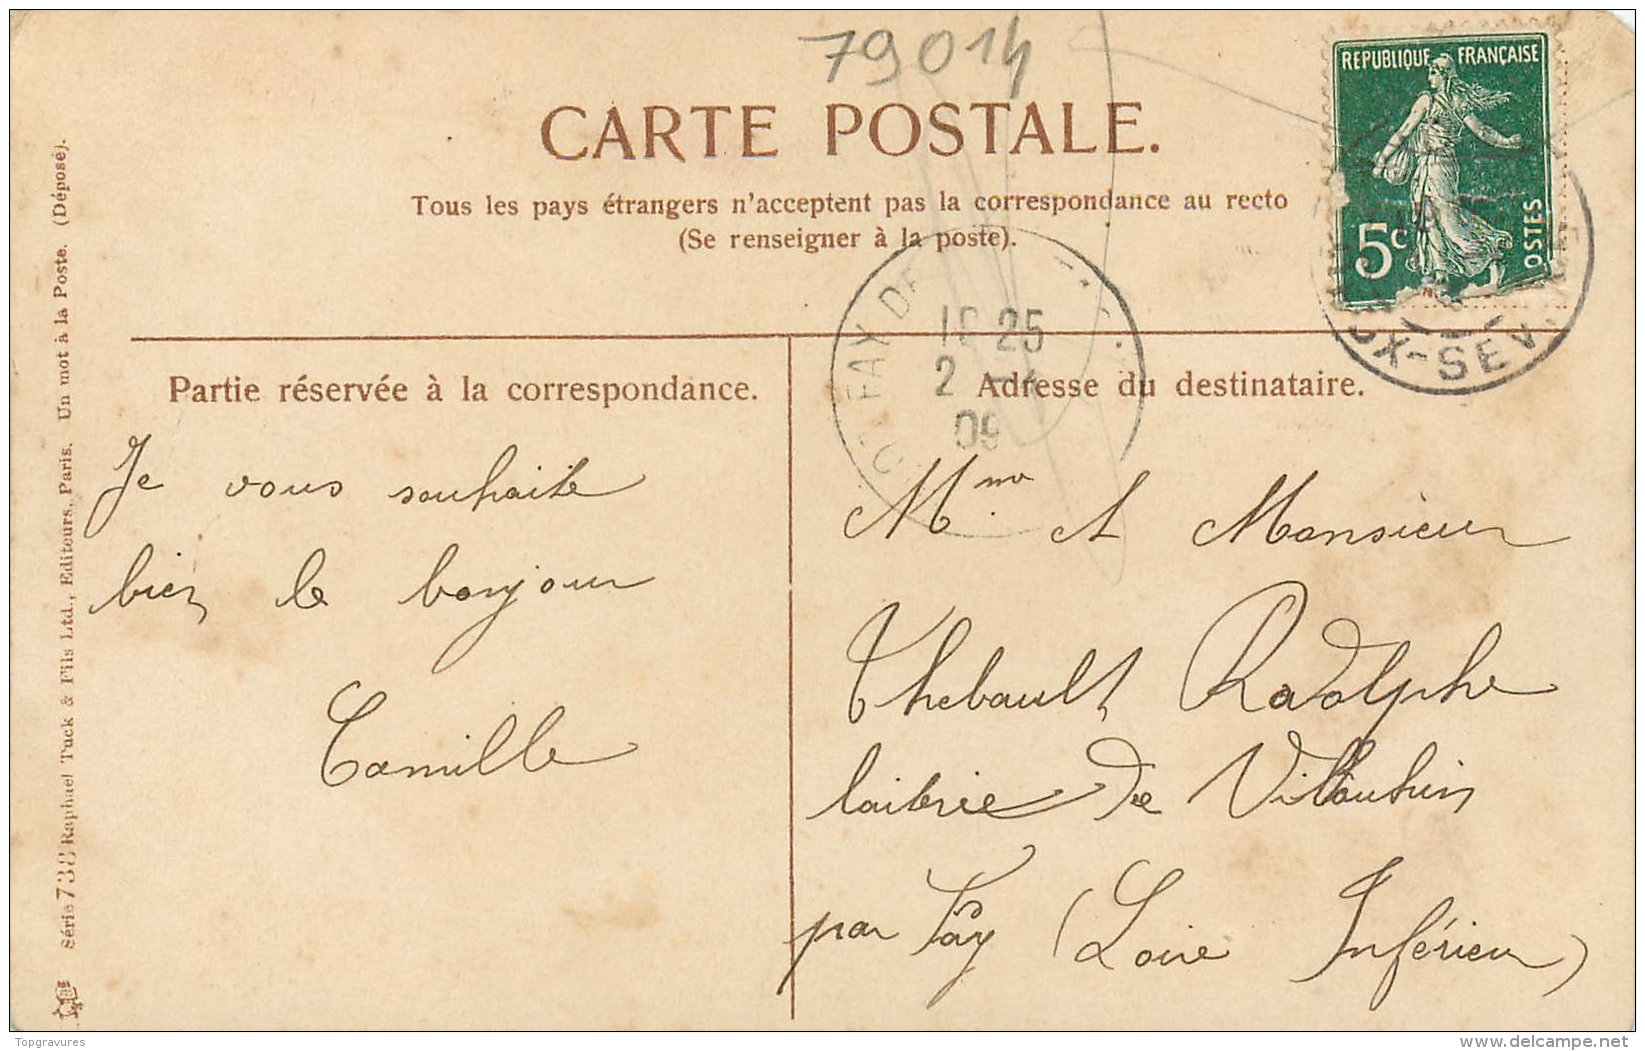 79014
REPUBLIQUE FRANÇAISE
5c
POSTES
CARTE POSTALE.
Tous les pays étrangers n'acceptent pas la correspondance au recto
(Se renseigner à la poste).
25
2
09
UX-SEV
Partie réservée à la correspondance.
Je vous souhaite
bien le bonjour
Camille
Adresse du destinataire.
Mme. et Monsieur
Thebault Radolphe
laiterie de
par Fay (Loire Inférieur)
Série 738 Raphael Tuck & Fils Ltd., Editeurs, Paris. Un mot à la Poste. (Déposé).
Topgravures
delcampe.net